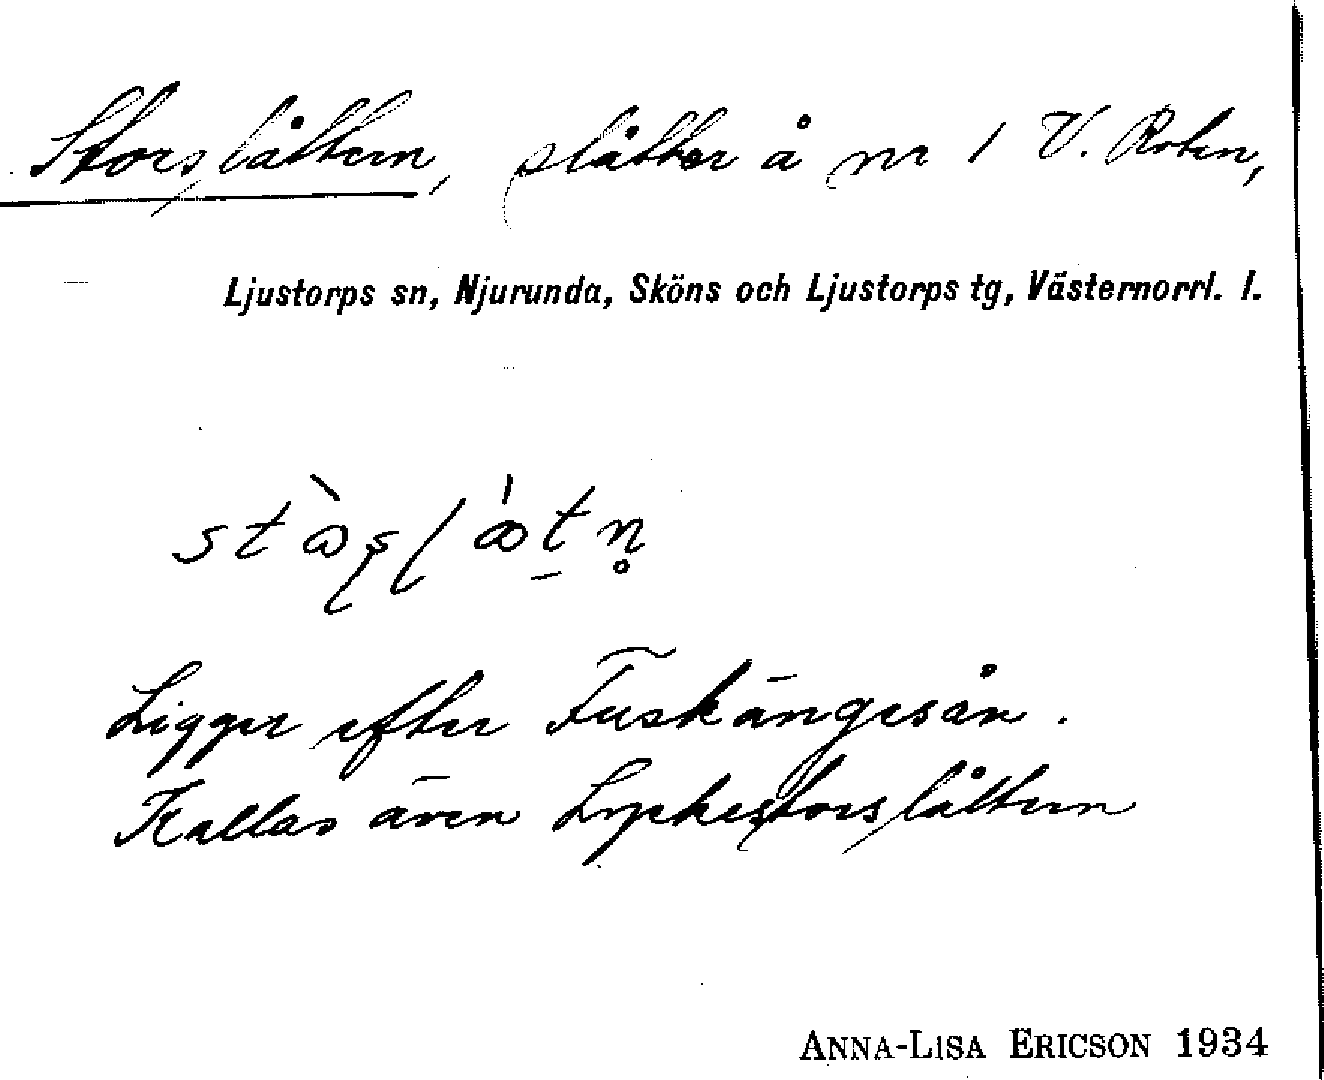 Storslåttern, slåtter å nr 1 V. Roten,
Ljustorps sn, Njurunda, Sköns och Ljustorps tg, Västernorrl. l.
Ligger efter Fuskängesån.
Kallas även Lyckestorslåttern
ANNA-LISA ERICSON 1934